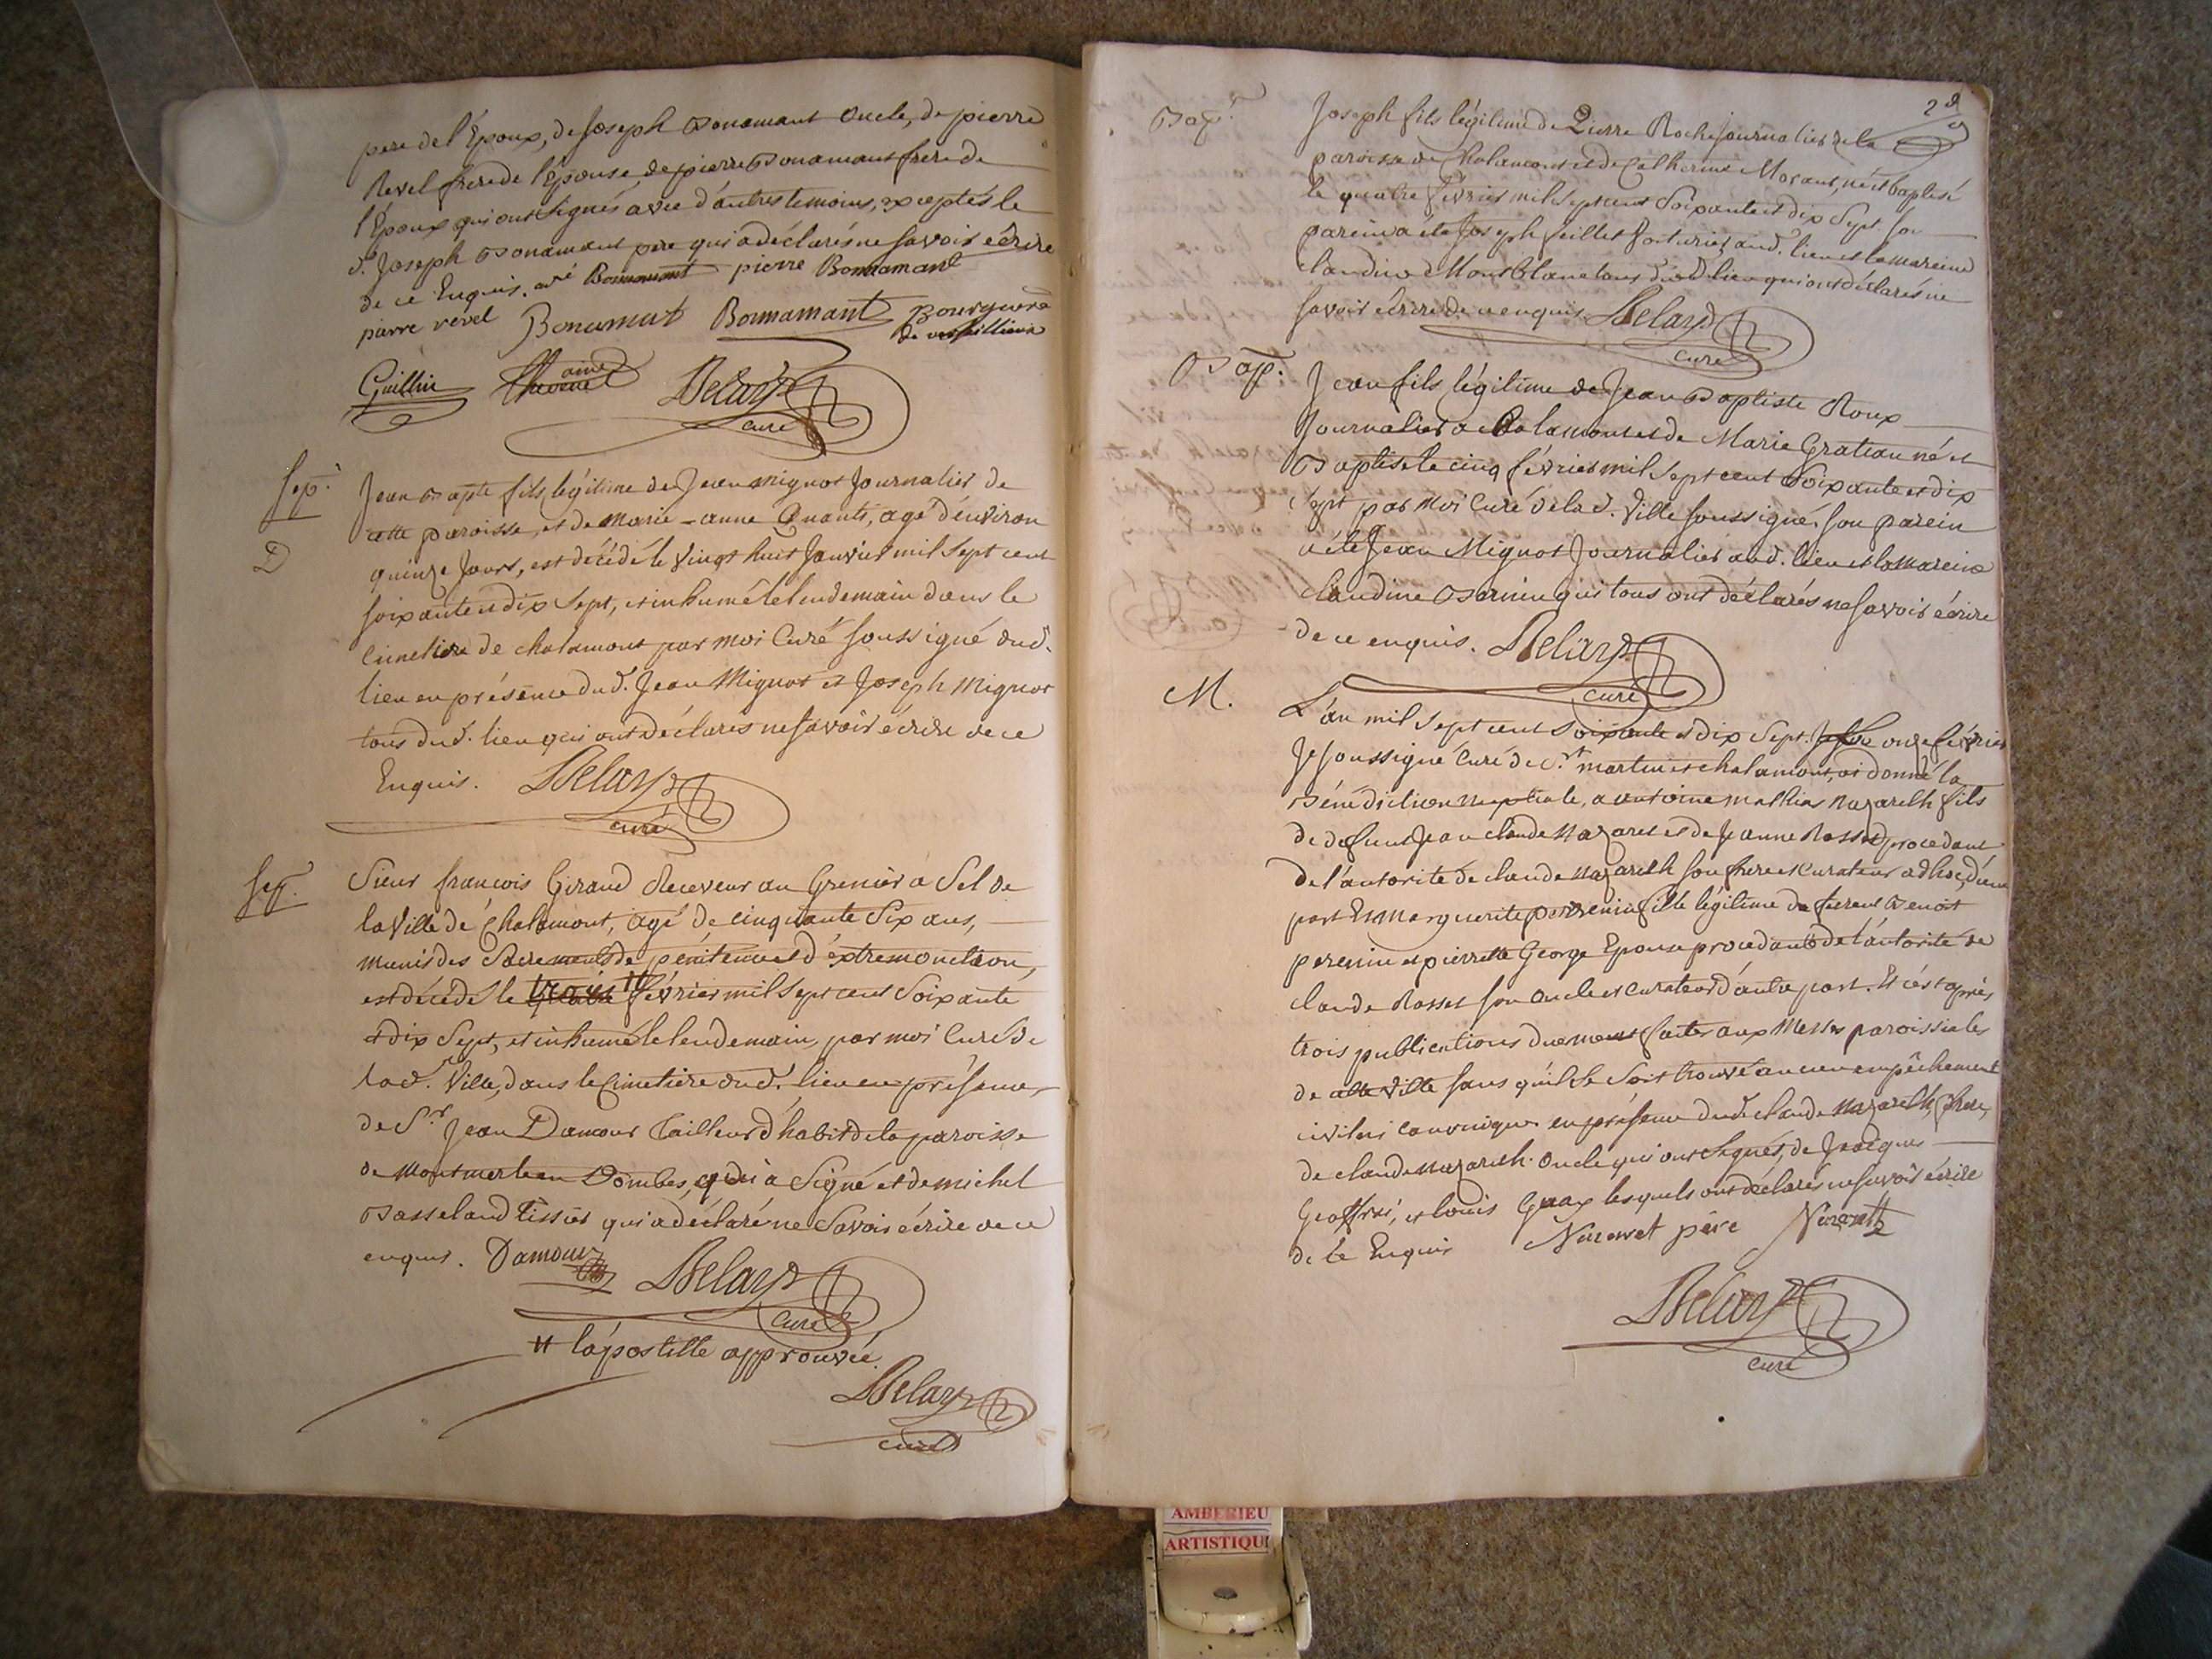 pere de l'Epoux, de Joseph Bonamant oncle, de pierre
Revel frere de l'Epouse, de pierre Bonamant frere de
l'Epoux qui ont signés avec d'autres temoins, exceptés le
d. Joseph Bonamant pere qui a déclarés ne savoir écrire
de ce Enquis. Bonnamant pierre Bonnamant
piarre revel Bonamut Bonnamant
Guillin Thevenet ainé Delary
curé
sep.
Jean Bapte fils légitime de Jean Mignot Journalier de
D
cette paroisse, et de marie-anne Quanti, agé d'énviron
quinze Jours, est décédé le vingt huit Janvier mil sept cent
soixante et dix sept, et inhumé le lendemain dans le
Cimetiere de chalamont par moi Curé soussigné dud.
lieu en présence dud. Jean Mignot et Joseph Mignot
tous dud. lieu qui ont déclarés ne savoir écrire de ce
Enquis. Delary
curé
sep.
Sieur francois Giraud Receveur au Grenier a Sel de
la Ville de Chalamont, agé de cinquante Six ans,
munis des Sacrements de pénitence et d'éxtremonction,
est décédé le trois # février mil sept cent Soixante
et dix Sept, et inhumé le lendemain, par moi Curé de
lad. Ville, dans le Cimetiere dud. lieu en présence,
de Sr. Jean Damour Tailleur d'habit de la paroisse
de Montmerle en Dombes, qui a Signé et de michel
Basseland tissier qui a déclaré ne Savoir écrire de ce
enquis. Damour Delary
Curé
# lápostille approuvée.
Delary
curé
2d
Bap.
Joseph fils légitime de Pierre Roche Journalier de la
paroisse de Chalamont et de Catherine Morant, né et baptisé
le quatre février mil sept cent Soixante et dix Sept. son
parein a été Joseph feillet aud. lieu et la mareine
claudine Montblanc tous dud. lieu qui ont déclarés ne
savoir écrire de ce enquis. Delary
curé
Bap.
Jean fils légitime de Jean Baptiste Roux
Journalier a Chalamont et de Marie Gratian né et
Baptisé le cinq février mil sept cent Soixante et dix
sept par moi Curé de lad. Ville soussigné. son parein
a été Jean Mignot Journalier aud. lieu et la mareine
claudine Bernin qui tous ont déclarés ne savoir écrire
de ce enquis. Delary
curé
M.
L'an mil sept cent soixante et dix sept. onze février
Je soussigné Curé de St. martin et chalamont, ai donné la
Bénédiction nuptiale, a antoine mathias Nazareth fils
de defunt Jean claude Nazaret et de Jeanne Rosset procedant
de l'autorité de claude Nazareth son frere et curateur adhoc, d'une
part Et Marguerite perrenin fille légitime de feu Benoit
perenin et pierrette George Epouse procedant de l'autorité de
claude Rosset son oncle et curateur d'autre part. Et c'est après
trois publications duement faites aux Messes paroissiales
de cette Ville sans qu'il se soit trouvé aucun empêchement
civil ni canonique en présence dud. claude Nazareth, frere,
de claude Nazareth oncle qui ont signés, de Jacques
Geoffrai, et louis Guax lesquels ont déclarés ne savoir écrire
de ce Enquis Nazaret père Nazareth
Delary
curé
AMBERIEU
ARTISTIQU